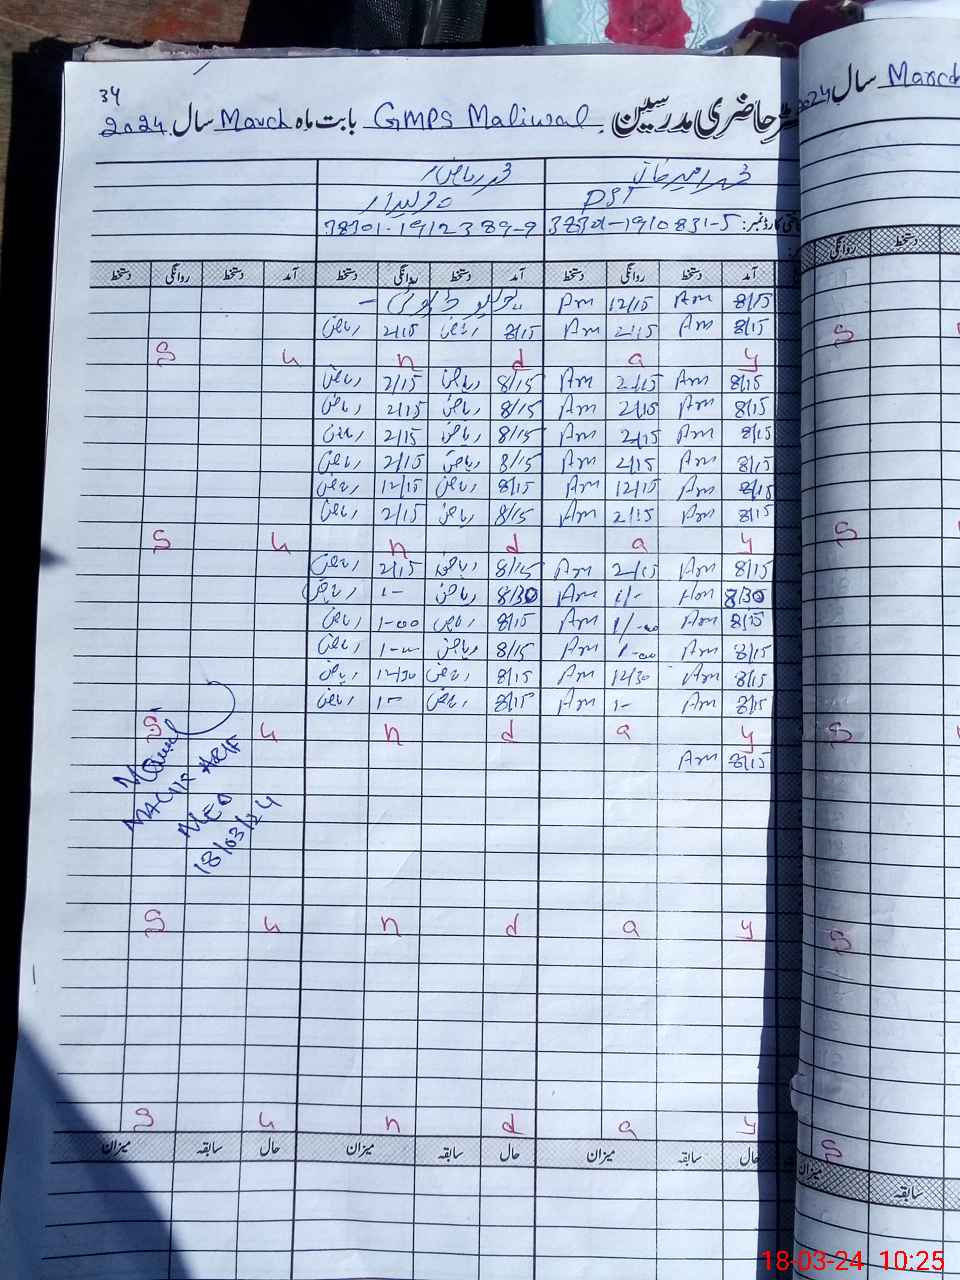 34
رجسٹر حاضری مدرسین GMPS Maliwal بابت ماہ March سال 2024
سال March
2024
محمد امیر خان محمد ریاض
PST چوکیدار
38301-1912389-9
آمد دستخط روانگی دستخط آمد دستخط روانگی دستخط آمد دستخط روانگی دستخط
روانگی دستخط
8/15 Am 12/15 Am
8/15 Am 2/15 Am 8/15 ریاض 2/15 ریاض
S u n d a y S
8/15 Am 2/15 Am 8/15 ریاض 2/15 ریاض
8/15 Am 2/15 Am 8/15 ریاض 2/15 ریاض
8/15 Am 2/15 Am 8/15 ریاض 2/15 ریاض
8/15 Am 2/15 Am 8/15 ریاض 2/15 ریاض
8/15 Am 12/15 Am 8/15 ریاض 12/15 ریاض
8/15 Am 2/15 Am 8/15 ریاض 2/15 ریاض
S u n d a y S
8/15 Am 2/15 Am 8/15 ریاض 2/15 ریاض
8/30 Am 1/- Am 8/30 ریاض 1- ریاض
8/15 Am 1/-00 Am 8/15 ریاض 1-00 ریاض
8/15 Am 1-00 Am 8/15 ریاض 1-00 ریاض
8/15 Am 12/30 Am 8/15 ریاض 12/30 ریاض
8/15 Am 1- Am 8/15 ریاض 1- ریاض
S u n d a y S
8/15 Am
MALIK ARIF
AEO
18/03/24
S u n d a y S
S u n d a y S
حال سابقہ میزان حال سابقہ میزان حال سابقہ میزان
میزان سابقہ
18-03-24 10:25